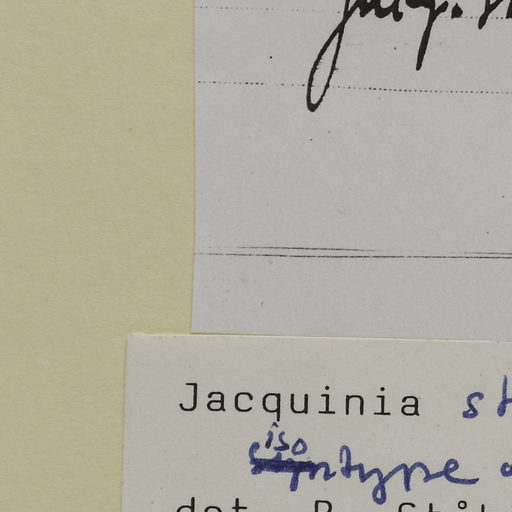 Jacquinia st
iso
syntype
det. B. Ståh